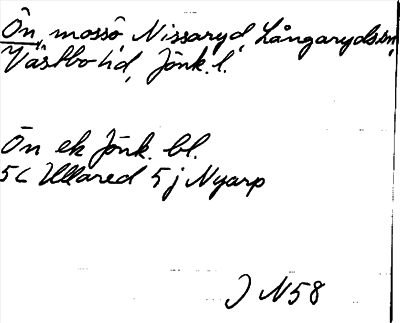 Ön, mossö, Nissaryd, Långaryds sn,
Västbo hd, Jönk. l.
Ön ek Jönk. bl.
5c Ullared 5j Nyarp
J N58